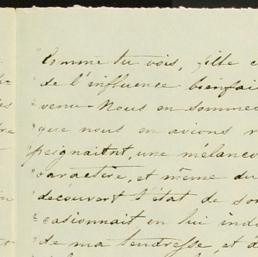 Comme tu vois, fille
de l'influence bienfai
venu. Nous en somme
que nous en avions
peignaitnt, une mélanco
caractère, et même du
découvert l'état de so
casionnait en lui ind
de ma tendresse, et d